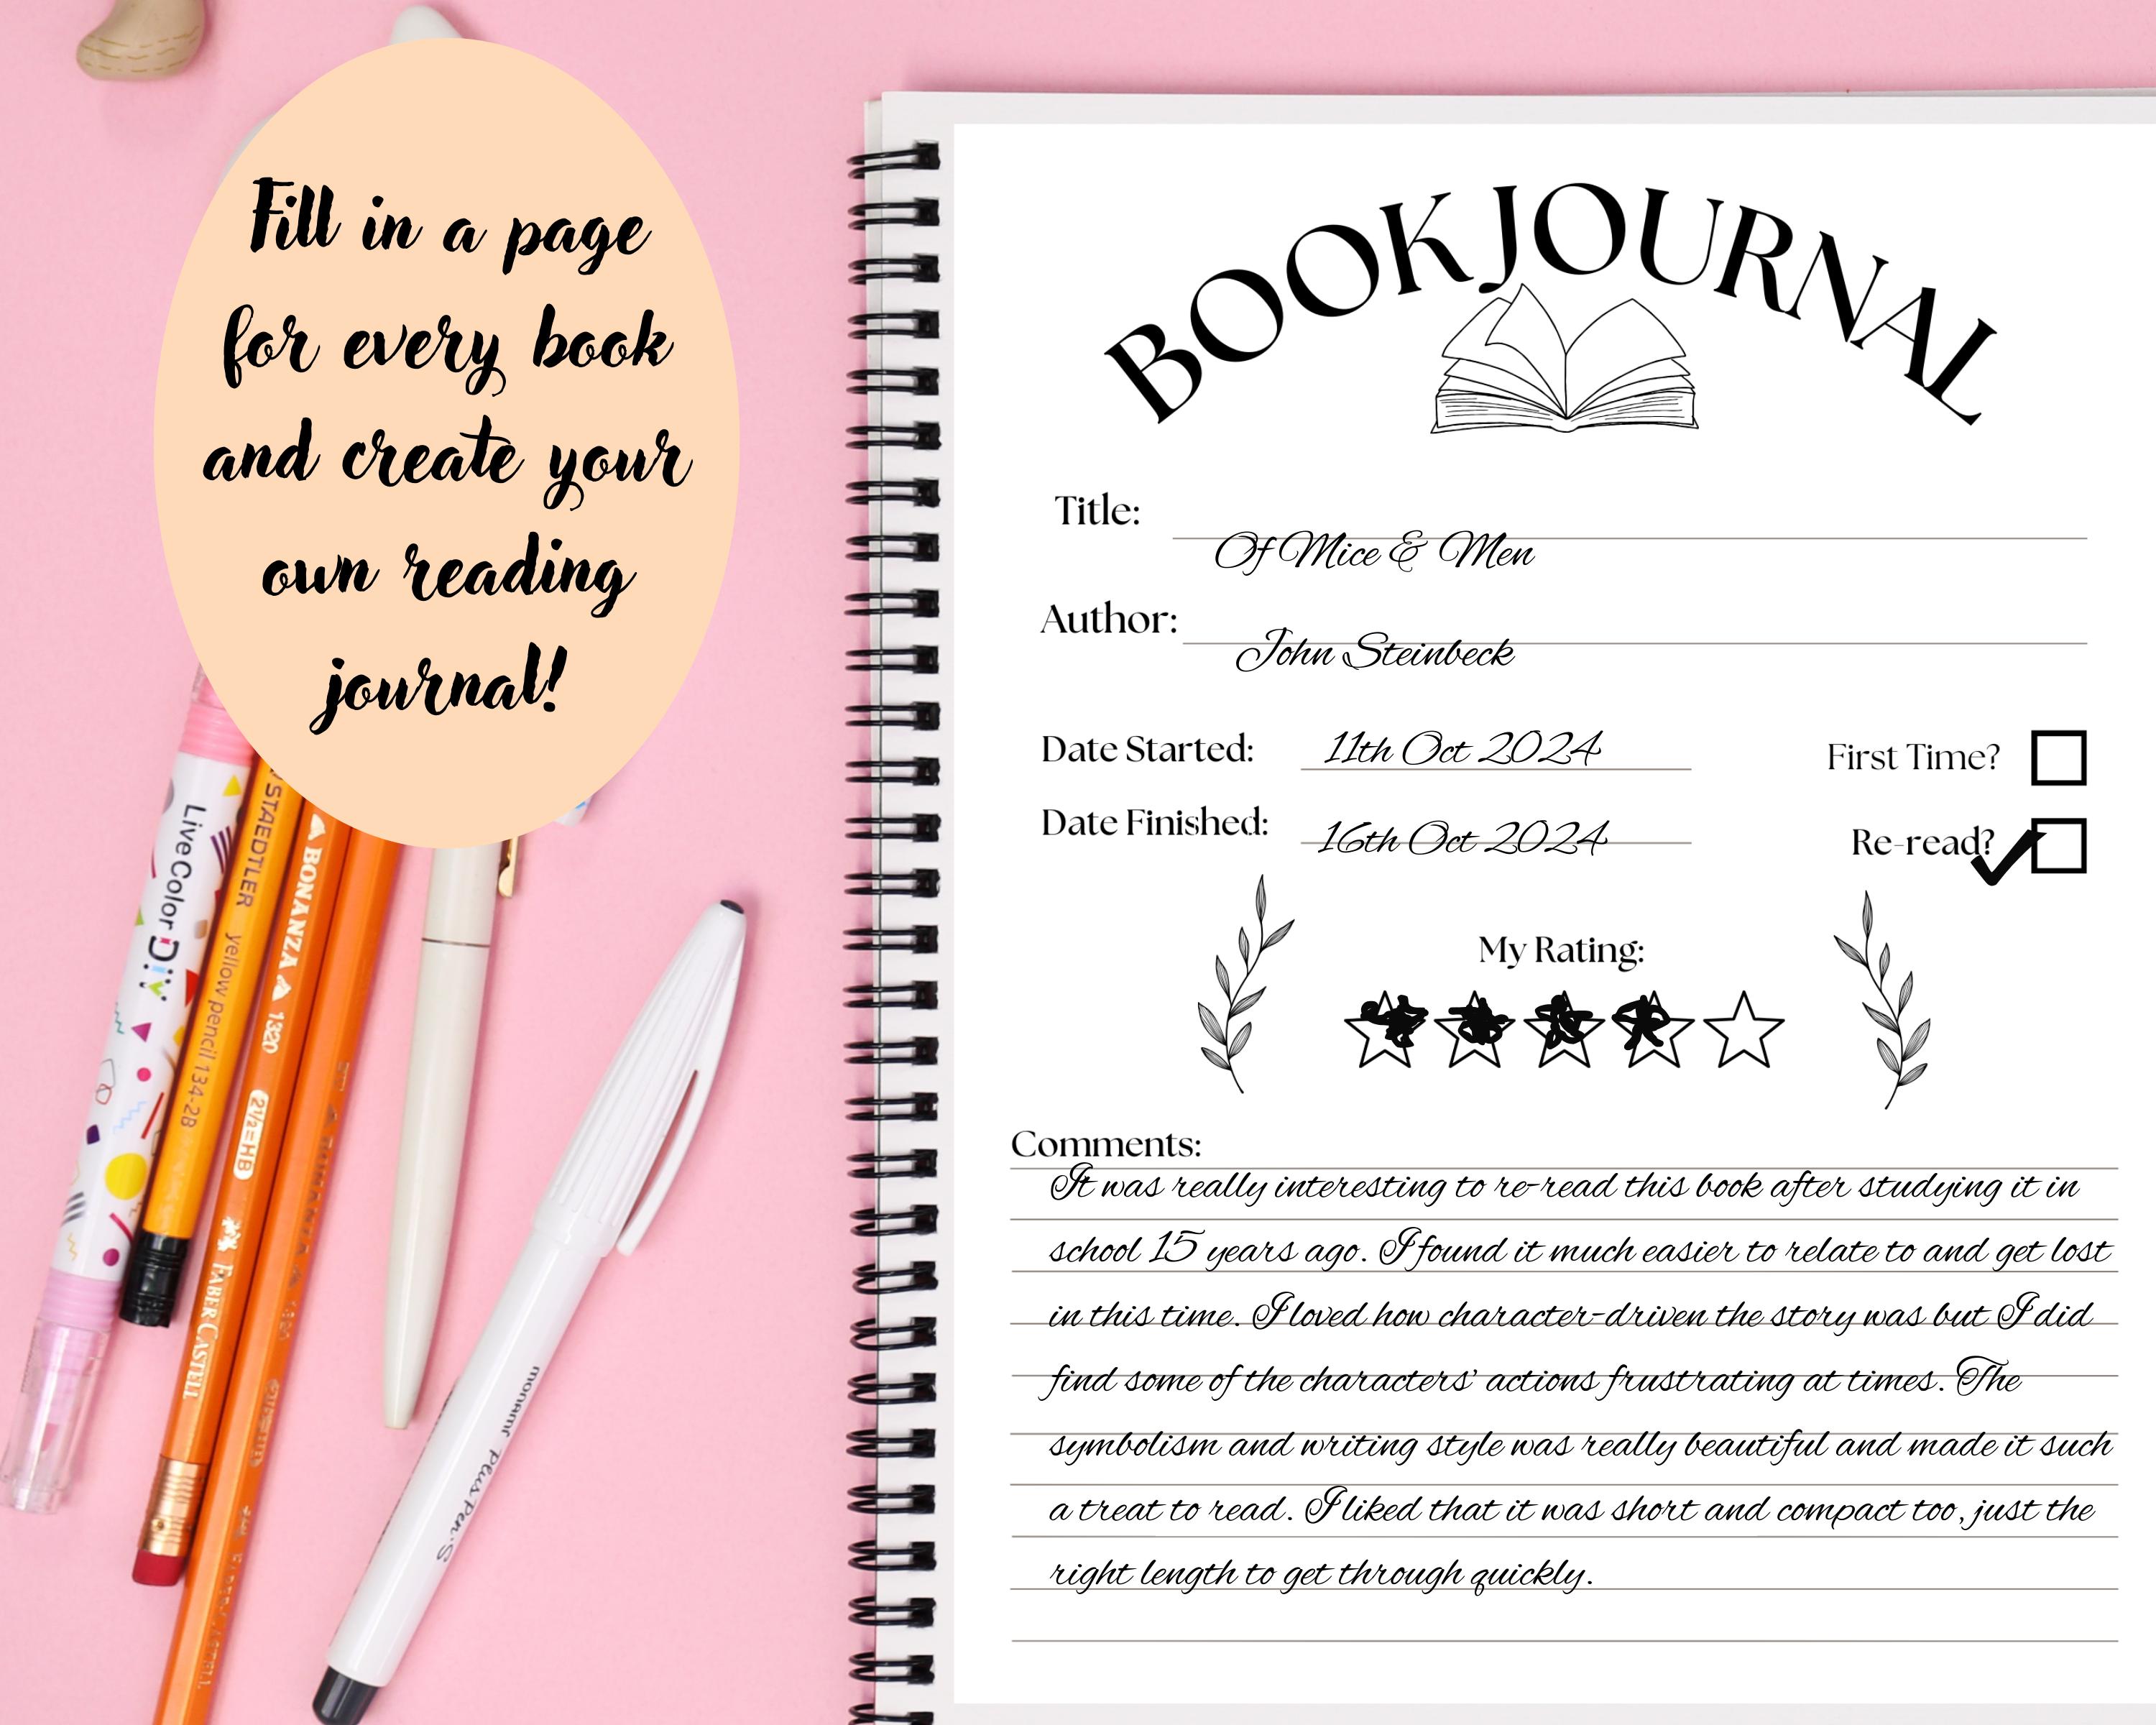 Fill in a page
for every book
and create your
own reading
journal!
BOOK JOURNAL
Title:
Of Mice & Men
Author:
John Steinbeck
Date Started: 11th Oct 2024
First Time?
Date Finished: 16th Oct 2024
Re-read?
My Rating:
Comments:
It was really interesting to re-read this book after studying it in
school 15 years ago. I found it much easier to relate to and get lost
in this time. I loved how character-driven the story was but I did
find some of the characters' actions frustrating at times. The
symbolism and writing style was really beautiful and made it such
a treat to read. I liked that it was short and compact too, just the
right length to get through quickly.
LiveColor DiY
STAEDTLER yellow pencil 134-2B
BONANZA 1320 2½=HB FABER CASTELL
monami Plus Pen S